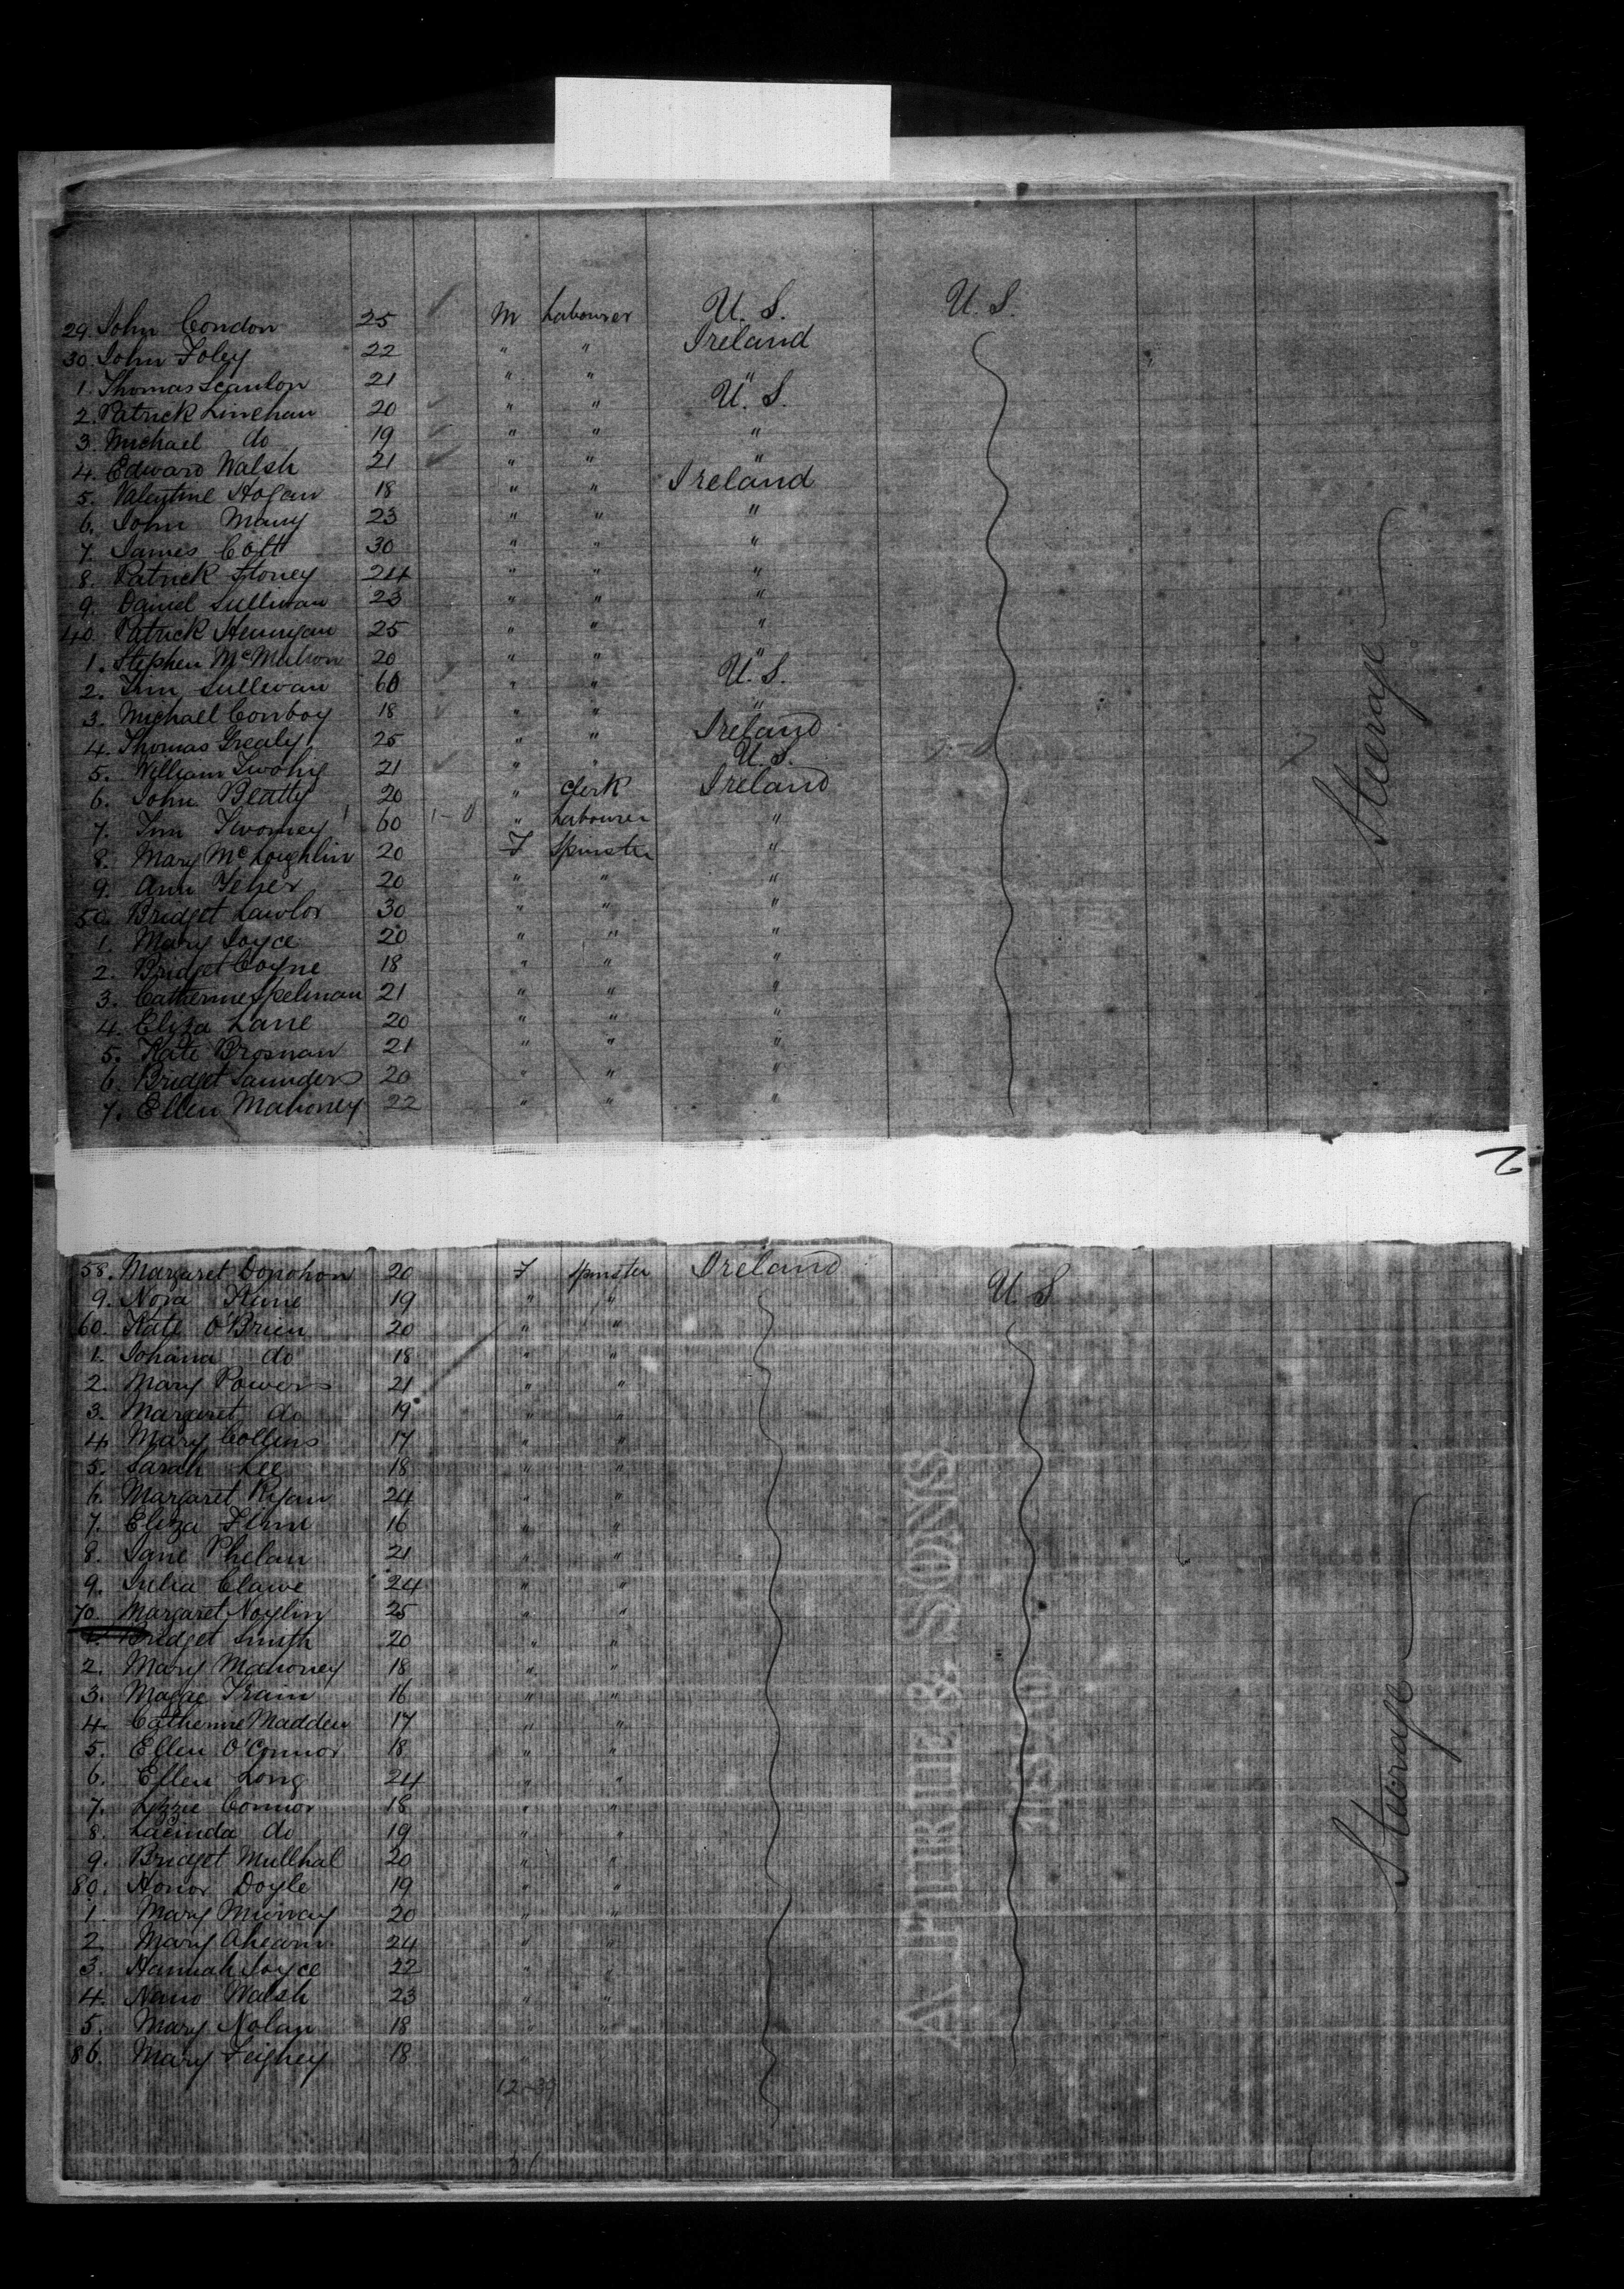 29. John Condon 25 M Labourer U. S. U. S.
30. John Foley 22 " " Ireland
1. Thomas Scanlon 21 " " "
2. Patrick Linehan 20 " " U. S.
3. Michael do 19 " " "
4. Edward Walsh 21 " " "
5. Valentine Hogan 18 " " Ireland
6. John Many 23 " " "
7. James Cott 30 " " "
8. Patrick Stoney 24 " " "
9. Daniel Sullivan 23 " " "
40. Patrick Hennigan 25 " " "
1. Stephen McMahon 20 " " "
2. Tim Sullivan 60 " " U. S.
3. Michael Conboy 18 " " "
4. Thomas Grealy 25 " " Ireland
5. William Twohy 21 " " U. S.
6. John Beatty 20 " Clerk Ireland
7. Tim Twomey 60 " Labourer "
8. Mary McLoughlin 20 F Spinster "
9. Ann 20 " " "
50. Bridget Lawlor 30 " " "
1. Mary Joyce 20 " " "
2. Bridget Coyne 18 " " "
3. Catherine Spelman 21 " " "
4. Eliza Lane 20 " " "
5. Kate Brosnan 21 " " "
6. Bridget Saunders 20 " " "
7. Ellen Mahoney 22 " " "
Steerage
58. Margaret Donohon 20 F Spinster Ireland U. S.
9. Nora 19 " "
60. Kate O'Brien 20 " "
1. Johana do 18 " "
2. Mary Powers 21 " "
3. Margaret do 19 " "
4. Mary Collins 17 " "
5. Sarah Lee 18 " "
6. Margaret Ryan 24 " "
7. Eliza 16 " "
8. Jane Phelan 21 " "
9. Julia 24 " "
70. Margaret 25 " "
1. Bridget Smith 20 " "
2. Mary Mahoney 18 " "
3. Magge 16 " "
4. Catherine Madden 17 " "
5. Ellen O'Connor 18 " "
6. Ellen Long 24 " "
7. Lizzie Connor 18 " "
8. Lucinda do 19 " "
9. Bridget Mullhal 20 " "
80. Honor Doyle 19 " "
1. Mary Murray 20 " "
2. Mary Ahearn 24 " "
3. Hannah Joyce 22 " "
4. Nano Walsh 23 " "
5. Mary Nolan 18 " "
86. Mary Feghey 18 "
Steerage
A. PIRIE & SONS